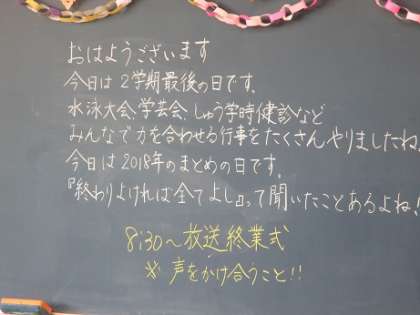 おはようございます
今日は2学期最後の日です。
水泳大会、学芸会、しゅう学時健診など
みんなで力を合わせる行事をたくさんやりましたね。
今日は2018年のまとめの日です。
『終わりよければ全てよし』って聞いたことあるよね!
8:30〜放送終業式
※声をかけ合うこと!!